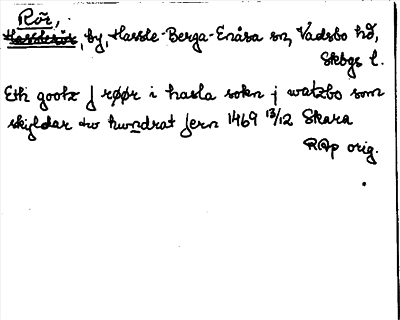 Rör,
Hasslerör, by, Hassle-Berga-Enåsa sn, Vadsbo hd,
Skbgs l.
Eth gootz j røør i hasla sokn j watzbo som
skyldar tw hwndrat jern 1469 13/12 Skara
RAp orig.